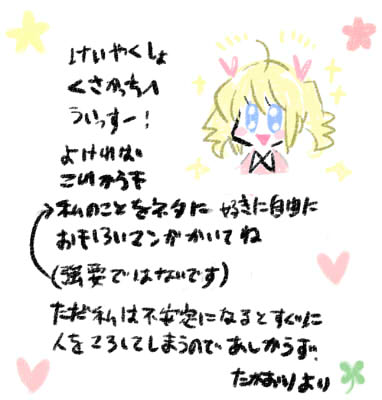 けいやくしょ
くさかっちへ
ういっすー！
よければ
これからも
私のことをネタに 好きに自由に
おもしろいマンガかいてね
(強要ではないです)
ただ私は不安定になるとすぐに
人をころしてしまうので あしからず。
たかおりより